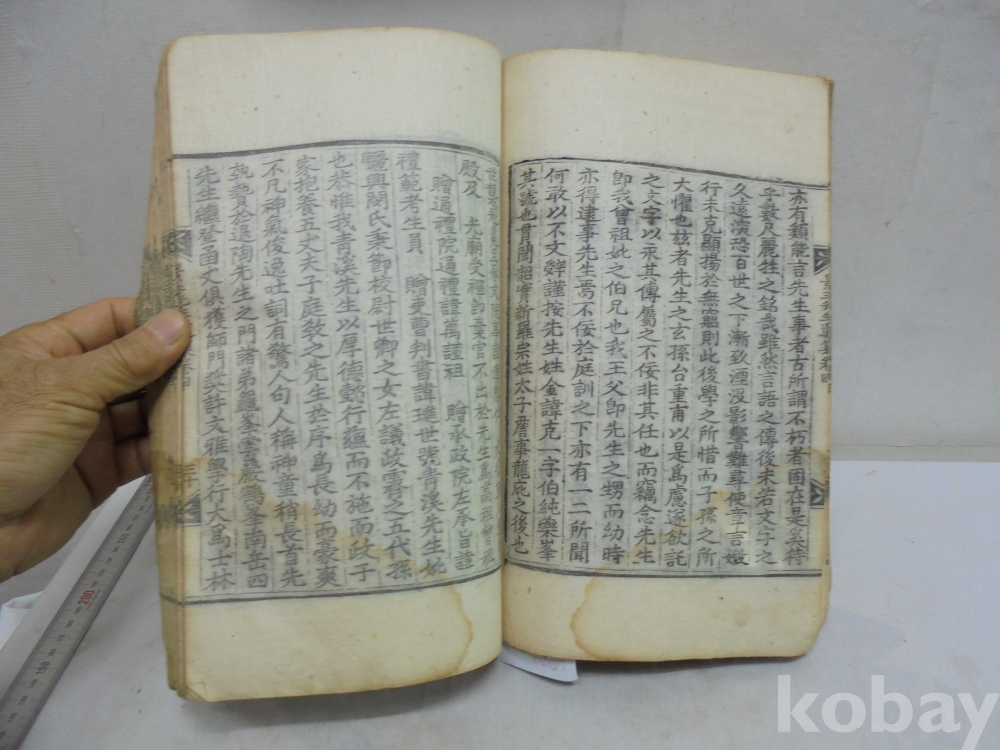 亦有類能言先生事者古所謂不朽者固在是矣待
乎數尺麗牲之銘哉雖然言語之傳後未若文字之
久遠演恐百世之下漸致湮沒影響難尋使幸言媺
行未克顯揚於無窮則此後學之所惜而子孫之所
大懼也玆者先生之玄孫台重甫以是爲慮遂欲託
之文字以永其傳屬之不佞非其任也而竊念先生
卽我曾祖妣之伯兄也我王父卽先生之甥而幼時
亦得逮事先生焉不佞於庭訓之下亦有一二所聞
何敢以不文辭謹按先生姓金諱克一字伯純樂峯
其號也貫聞韶實新羅宗姓太子詹事龍庇之後也
殿及 光廟受禪卽棄官不出於
贈通禮院通禮諱萬謹祖 贈承政院左承旨諱
禮範考生員 贈吏曹判書諱璡世號靑溪先生妣
驪興閔氏秉節校尉世卿之女左議政霽之五代孫
也恭惟我靑溪先生以厚德懿行蘊而不施而政于
家抱養五丈夫子庭敎之先生於序爲長幼而豪爽
不凡神氣俊逸吐詞有驚人句人稱神童稍長首先
執贄於退陶先生之門諸弟龜峯雲巖鶴峯南岳四
先生繼登函丈俱獲師門獎許文雅學行大爲士林
三十
200
150
kobay